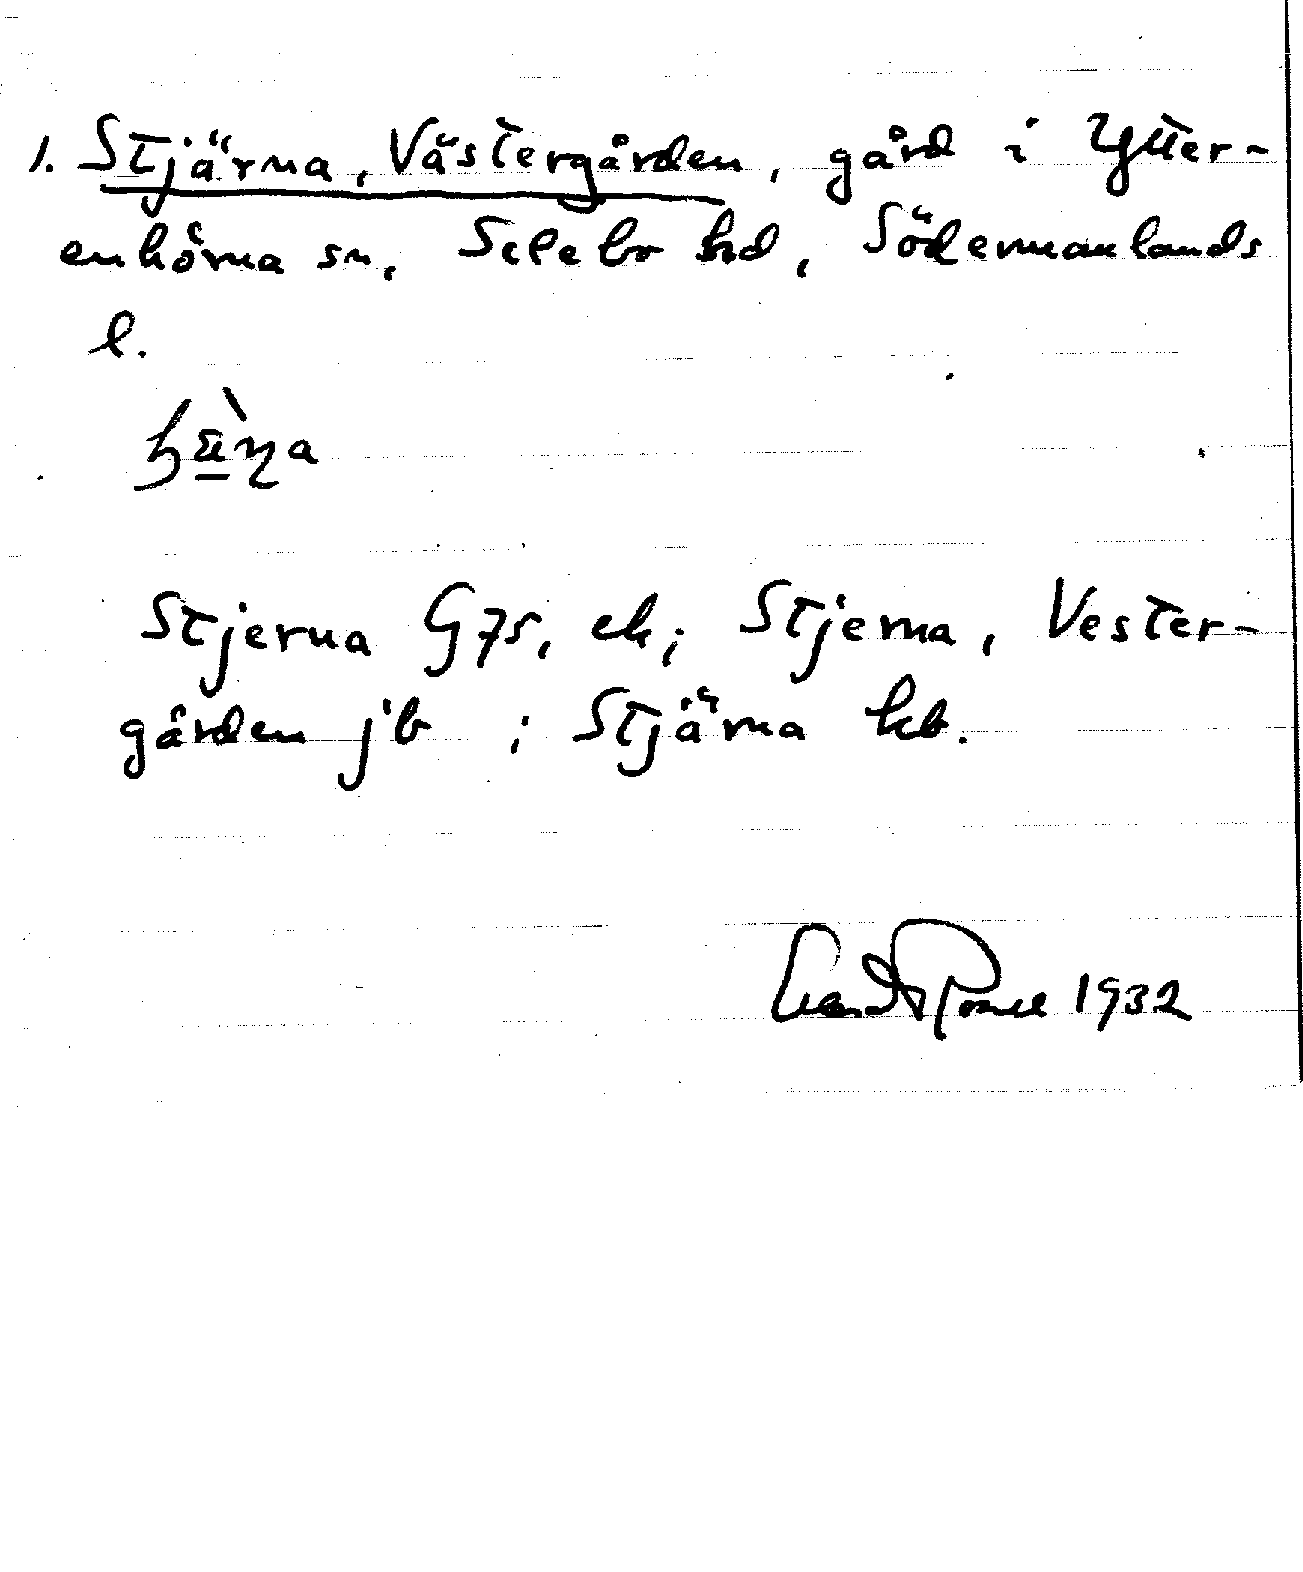 1. Stjärna, Västergården, gård i Ytter-
enhörna sn, Selebo hd, Södermanlands
l.
Stjerna G75, ek; Stjerna, Vester-
gården jb ; Stjärna kb.
1932